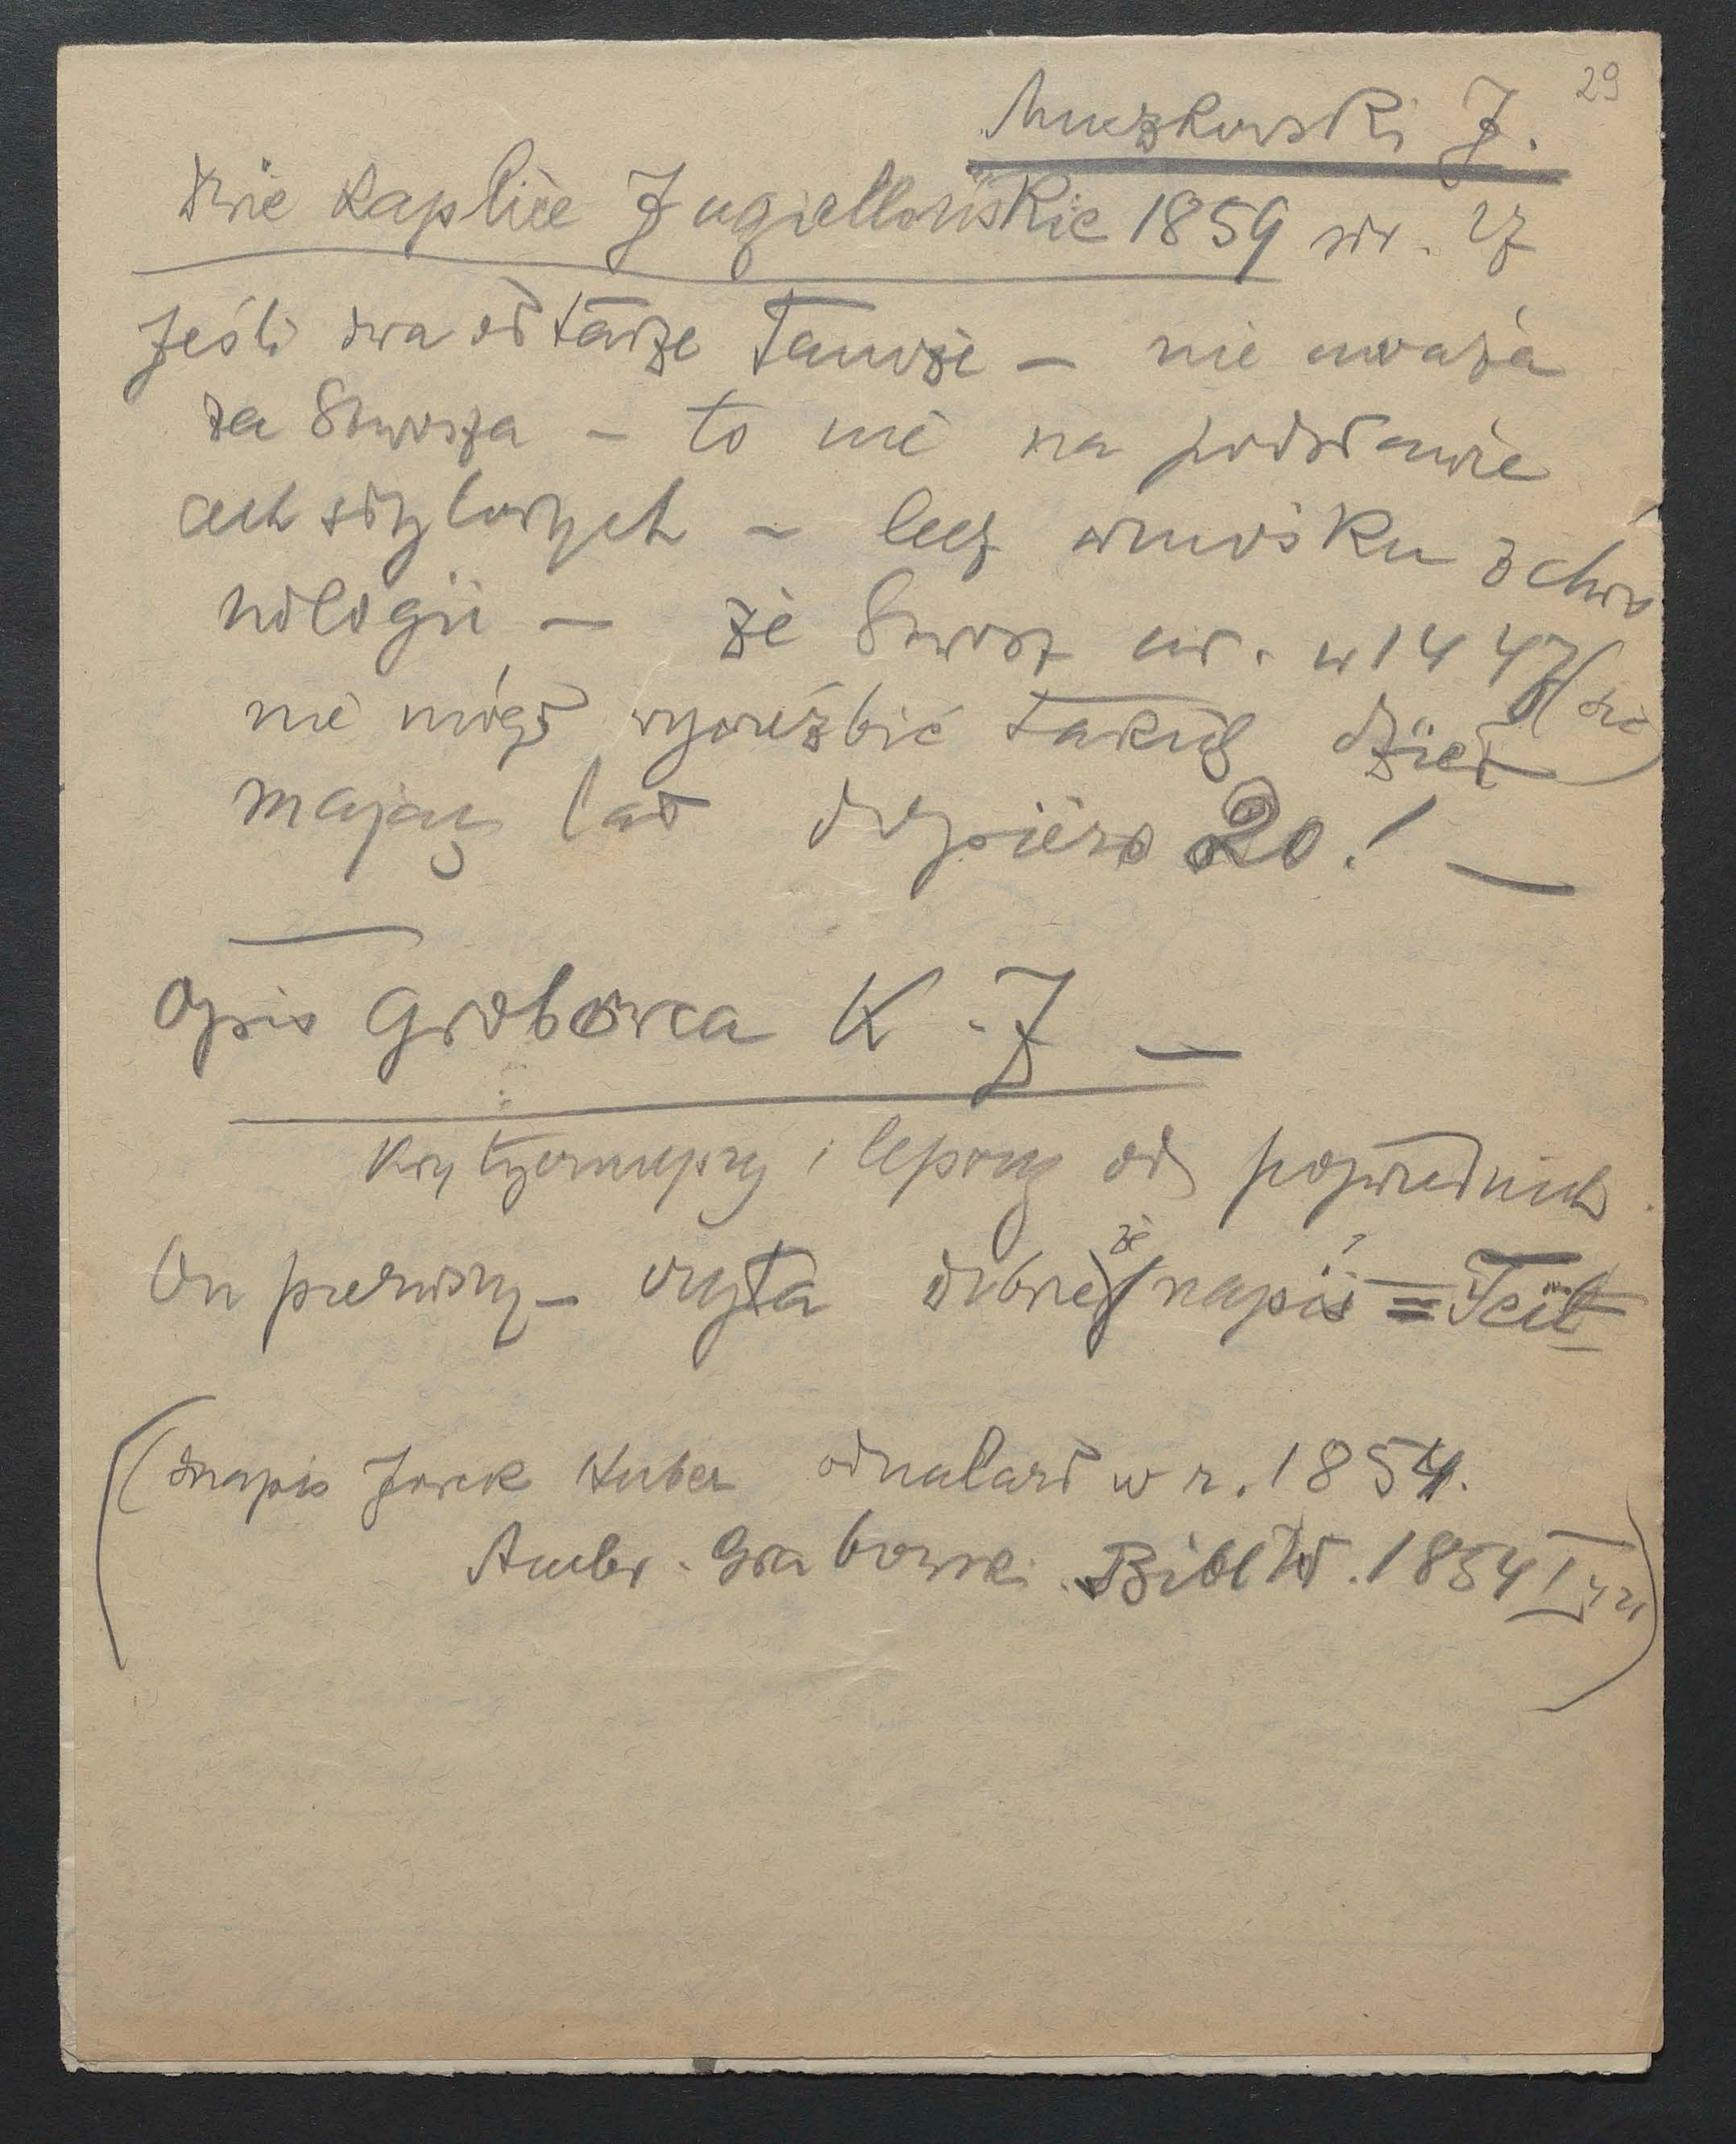 29
Muczkowski J.
Dwie kaplice Jagiellońskie 1859 str. 27
Jeśli dwa ołtarze Tamże — nie uważa
za Stwosza — to nie na podstawie
cech stylowych — lecz wniosku z chro
nologii — że Stwosz ur. w 1447 (sic)
nie mógł wyrzeźbić takich dzieł
mając lat dopiero 20! —
Opis Grobowca K. J —
krytyczniejszy i lepszy od poprzednich
On pierwszy — czyta dobrze że napis = Feit
(napis Jorck Huber odnalazł w r. 1854.
Ambr. Grabowski. Bibl W. 1854 I